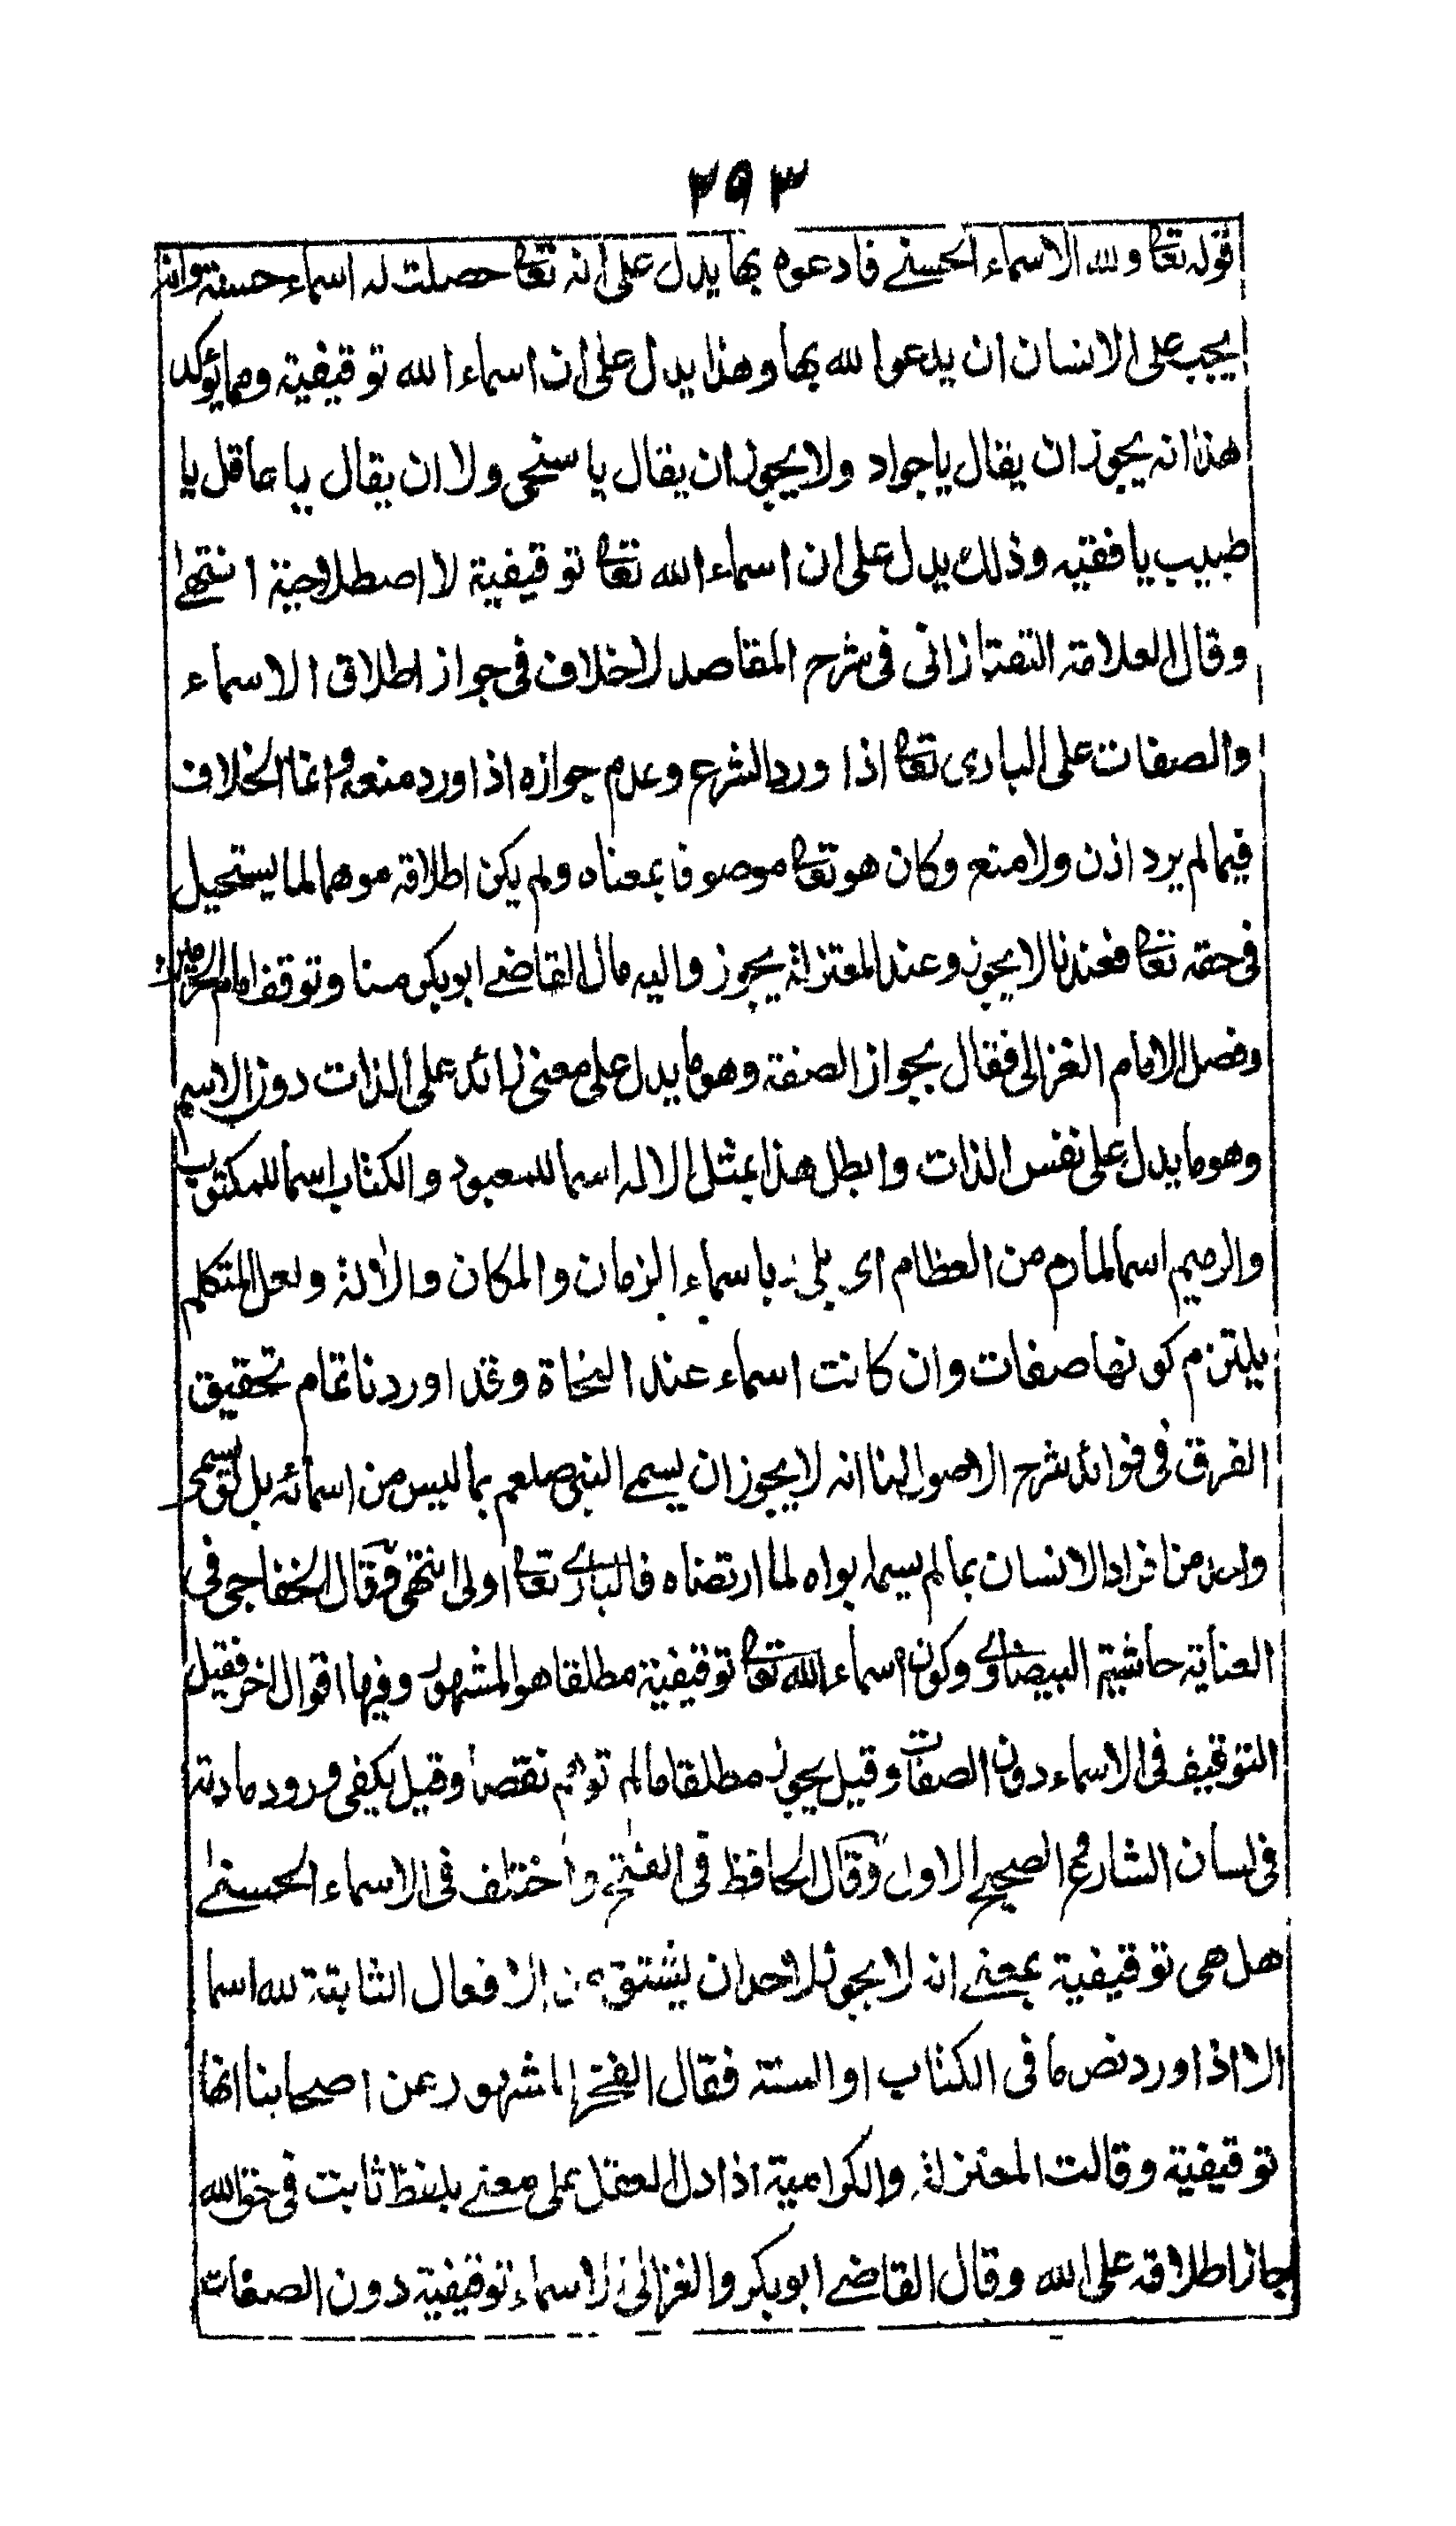 ٢٩٣
قوله تعا ولله الاسماء الحسنے فادعوه بها يدل على انه تعا حصلت له اسماء حسنة وانه
يجب على الانسان ان يدعوا لله بها وهذا يدل على ان اسماء الله توقيفية ومما يؤكد
هذا انه يجوز ان يقال يا جواد ولا يجوز ان يقال يا سخى ولا ان يقال يا عاقل يا
طبيب يا فقيه وذلك يدل على ان اسماء الله تعا توقيفية لا اصطلاحية انتهى
وقال العلامة التفتازانى فى شرح المقاصد لا خلاف فى جواز اطلاق الاسماء
والصفات على البارى تعا اذا ورد الشرع وعدم جوازه اذا ورد منعه وانما الخلاف
فيما لم يرد اذن ولا منع وكان هو تعا موصوفا بمعناه ولم يكن اطلاقه موهما لما يستحيل
فى حقه تعا فعندنا لا يجوز وعند المعتزلة يجوز واليه مال القاضے ابو بكر منا وتوقف امام الحرمين
وفصل الامام الغزالى فقال بجواز الصفة وهو ما يدل على معنى زائد على الذات دون الاسم
وهو ما يدل على نفس الذات وابطل هذا بمثل الاله اسما للمعبود والكتاب اسما للمكتوب
والرميم اسما لما رم من العظام اى بلى باسماء الزمان والمكان والآلة ولعل المتكلم
يلتزم كونها صفات وان كانت اسماء عند النحاة وقد اوردنا تمام تحقيق
الفرق فى فوائد شرح الاصول لنا انه لا يجوز ان يسمے النبى صلعم بما ليس من اسمائه بل لو سمى
واحد من افراد الانسان بما لم يسمه ابواه لما ارتضاه فالبارے تعا اولى انتهى وقال الخفاجى فى
العناية حاشية البيضاوے وكون اسماء الله تعا توقيفية مطلقا هو المشهور وفيها اقوال اخر فقيل
التوقيف فى الاسماء دون الصفات وقيل يجوز مطلقا ما لم توهم نقصا وقيل يكفى ورود مادته
فى لسان الشارع والصحيح الاول وقال الحافظ فى الفتح واختلف فى الاسماء الحسنے
هل هى توقيفية بمعنے انه لا يجوز لاحد ان يشتق من الافعال الثابتة لله اسما
الا اذا ورد نص ما فى الكتاب او السنة فقال الفخر المشهور عن اصحابنا انها
توقيفية وقالت المعتزلة والكرامية اذا دل العقل على معنے بلفظ ثابت فى حق الله
جاز اطلاقه على الله وقال القاضے ابو بكر والغزالى الاسماء توقيفية دون الصفات